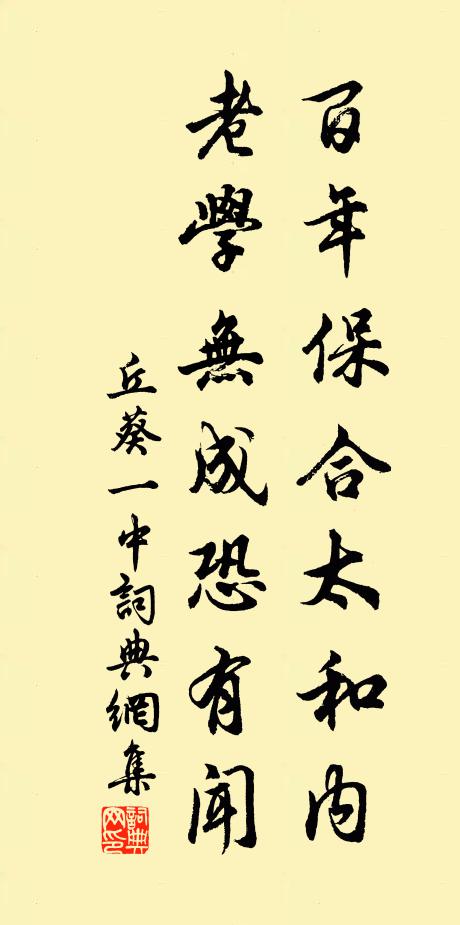 百年保合太和內
老學無成恐有聞
丘葵一中詞典網集
詞典網印